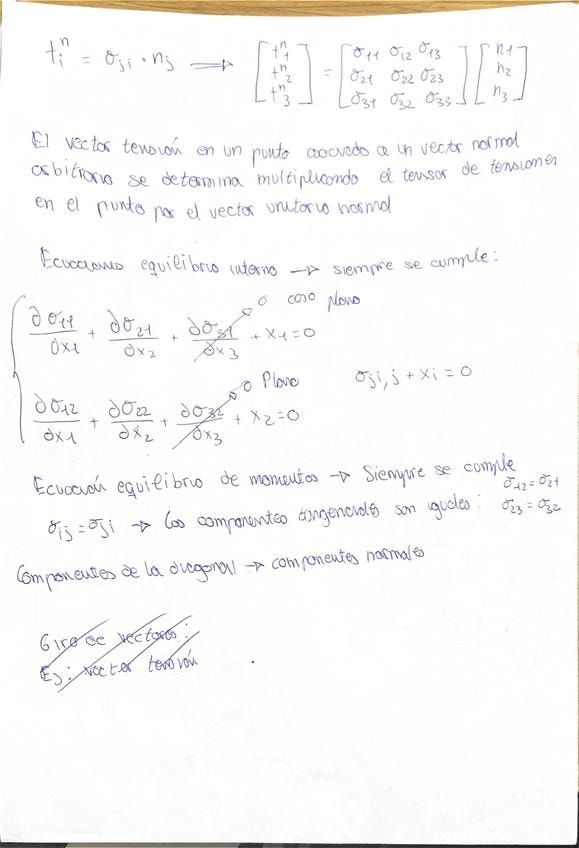 tᵢⁿ = σji · nj → [t₁ⁿ t₂ⁿ t₃ⁿ] = [σ11 σ12 σ13; σ21 σ22 σ23; σ31 σ32 σ33] [n1 n2 n3]
El vector tensión en un punto asociado a un vector normal
arbitrario se determina multiplicando el tensor de tensiones
en el punto por el vector unitario normal
Ecuaciones equilibrio interno → siempre se cumple:
0 caso plano
∂σ11/∂x1 + ∂σ21/∂x2 + ∂σ31/∂x3 + x1 = 0
0 Plano
σji,j + xi = 0
∂σ12/∂x1 + ∂σ22/∂x2 + ∂σ32/∂x3 + x2 = 0
Ecuación equilibrio de momentos → Siempre se cumple
σij = σji → Las componentes tangenciales son iguales: σ12 = σ21
σ23 = σ32
Componentes de la diagonal → componentes normales
Giro de vectores:
Ej: vector tensión